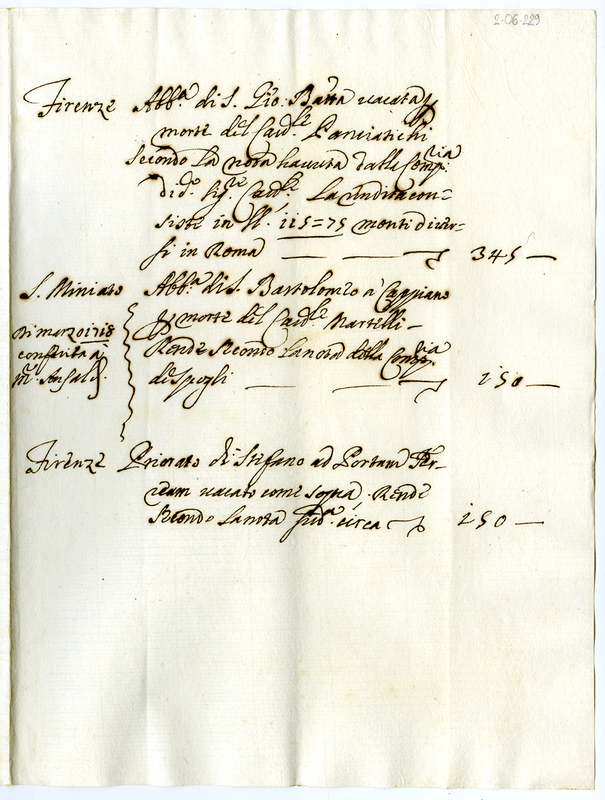 2·06·229
Firenze Abb.ª di S. Gio: Batta vacata p
morte del Card.le Panciatichi
Secondo la nota havuta dalla Comp.ria
di d.º Sig.re Card.le La rendita con=
siste in ll. 115=75 monti diver=
si in Roma — — 345 —
S. Miniato Abb.ª di S. Bartolomeo à Cappiano
p morte del Card.le Martelli –
Rende Secondo la nota della Comp.ria
de Spogli — — 150 —
Di marzo 1718
conferita a
M.r Ansaldi
Firenze Priorato di Stefano ad Portam Fer=
ream vacato come sopra. Rende
Secondo la nota sud.ª circa 250 —